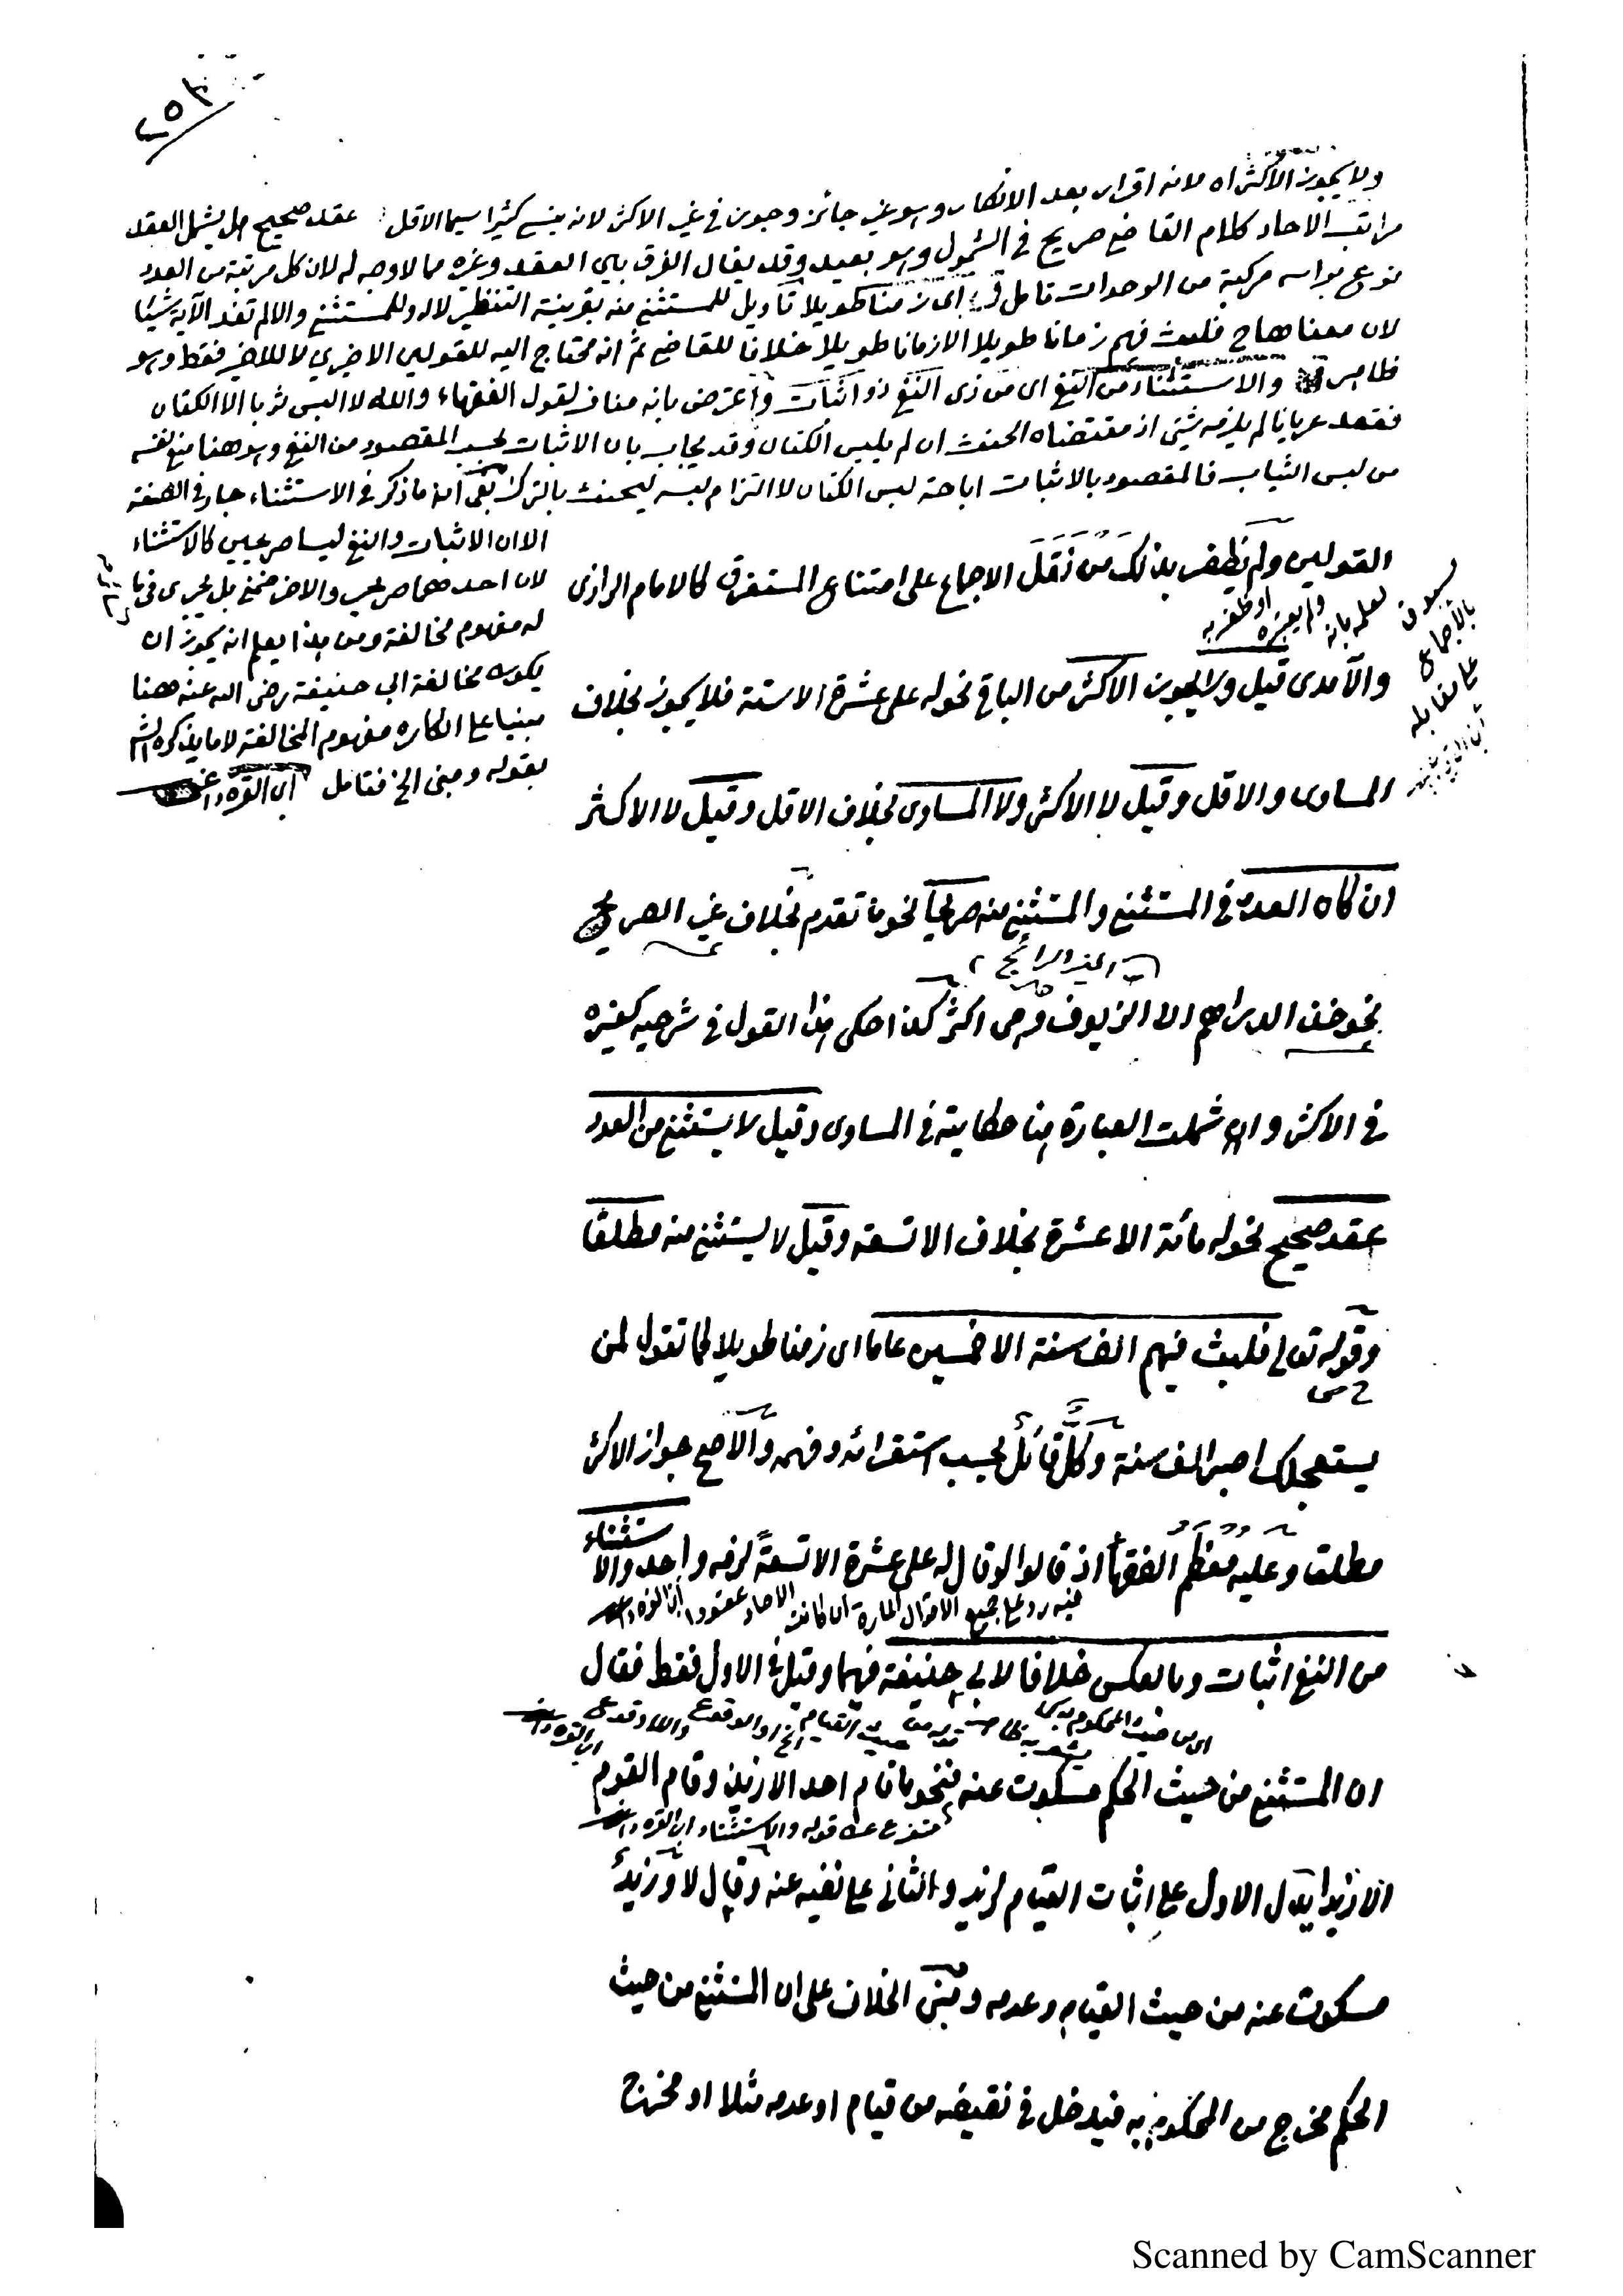 ٢٥٣
ولا يجوز الاكثر اه لانه اقرار بعد الانكار وهو غير جائز وجوز في غير الاكثر لانه ينسى كثيرا سيما الاقل عقد صحيح هل يشمل العقد
مراتب الاحاد كلام القاضي صريح في الشمول وهو بعيد وقد يقال الفرق بين العقد وغيره مما لا وجه له لان كل مرتبة من العدد
نوع براسه مركبة من الوحدات تامل اى زمنا طويلا تأويل للمستثنى منه بقرينة التنظير لا له وللمستثنى والا لم تفد الآية شيئا
لان معناها ح فلبث فيهم زمانا طويلا الا زمانا طويلا خلافا للقاضي ثم انه محتاج اليه للقولين الاخيرين لا للاخير فقط وهو
ظاهر والاستثناء من النفي اى من ذى النفي ذو اثبات واعترض بانه مناف لقول الفقهاء والله لا البس ثوبا الا الكتان
فقعد عريانا لم يلزمه شئ اذ مقتضاه الحنث ان لم يلبس الكتان وقد يجاب بان الاثبات بحسب المقصود من النفي وهو هنا منع نفسه
من لبس الثياب فالمقصود بالاثبات اباحة لبس الكتان لا التزام لبسه ليحنث بالترك بقى ان ما ذكر في الاستثناء جار في الصفة
الا ان الاثبات والنفي ليسا صريحين كالاستثناء
لان احدهما صريح والاخر ضمني بل يجرى في ما
له مفهوم مخالفة ومن هذا يعلم انه يجوز ان
يكون مخالفة ابي حنيفة رضى الله عنه ههنا
مبنيا على انكاره مفهوم المخالفة لا ما يذكره الشم
بقوله ومبنى الخ فتامل ابن القره داغي
القولين ولم يظفر بذلك من نقل الاجماع على امتناع المستغرق كالامام الرازى
او ظفر به
ولم يعتبره
لعلمه بانه
مسبوق
بالاجماع
على مقابله
والآمدى قيل ولا يجوز الاكثر من الباقي نحو له على عشرة الا ستة فلا يجوز بخلاف
المساوى والاقل وقيل لا الاكثر ولا المساوى بخلاف الاقل وقيل لا الاكثر
ان كان العدد في المستثنى والمستثنى منه صريحا نحو ما تقدم بخلاف غير الصريح
نحو خذ الدراهم الا الزيوف وهى اكثر كذا حكى هذا القول في شرحيه كغيره
في الاكثر وان شملت العبارة هنا حكايته في المساوى وقيل لا يستثنى من العدد
عقد صحيح نحو له مائة الا عشرة بخلاف الا تسعة وقيل لا يستثنى منه مطلقا
وقوله تعالى فلبث فيهم الف سنة الا خمسين عاما اى زمنا طويلا كما تقول لمن
يستعجلك اصبر الف سنة وكل قائل بحسب استقرائه وفهمه والاصح جواز الاكثر
مطلقا وعليه معظم الفقهاء اذ قالوا لو قال له على عشرة الا تسعة لزمه واحد والاستثناء
فيه رد على جميع الاقوال المارة ان كانت الاحاد عقودا ابن القره داغي
من النفي اثبات وبالعكس خلافا لابي حنيفة فيهما وقيل في الاول فقط فقال
اى من حيث المحكوم به
ان المستثنى من حيث الحكم مسكوت عنه فنحو ما قام احد الا زيد وقام القوم
متفرع على قوله والاستثناء ابن القره داغي
الا زيدا يدل الاول على اثبات القيام لزيد والثانى على نفيه عنه وقال لا وزيد
مسكوت عنه من حيث القيام وعدمه ومبنى الخلاف على ان المستثنى من حيث
الحكم مخرج من المحكوم به فيدخل في نقيضه من قيام او عدمه مثلا او مخرج
Scanned by CamScanner